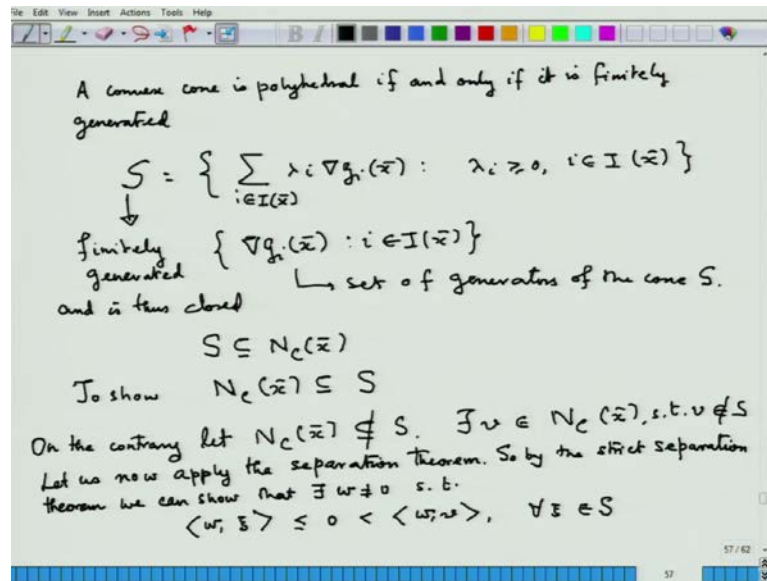 File Edit View Insert Actions Tools Help
B I
A convex cone is polyhedral if and only if it is finitely
generated
S = { ∑_{i∈I(x̄)} λi ∇gi(x̄) : λi ≥ 0, i ∈ I(x̄) }
↓
finitely { ∇gi(x̄) : i ∈ I(x̄) }
generated ↳ set of generators of the cone S.
and is thus closed
S ⊆ N_C(x̄)
To show N_C(x̄) ⊆ S
On the contrary let N_C(x̄) ⊄ S. ∃ v ∈ N_C(x̄), s.t. v ∉ S
Let us now apply the separation theorem. So by the strict separation
theorem we can show that ∃ w ≠ 0 s.t.
⟨w, ξ⟩ ≤ 0 < ⟨w, v⟩, ∀ ξ ∈ S
57 / 62
57